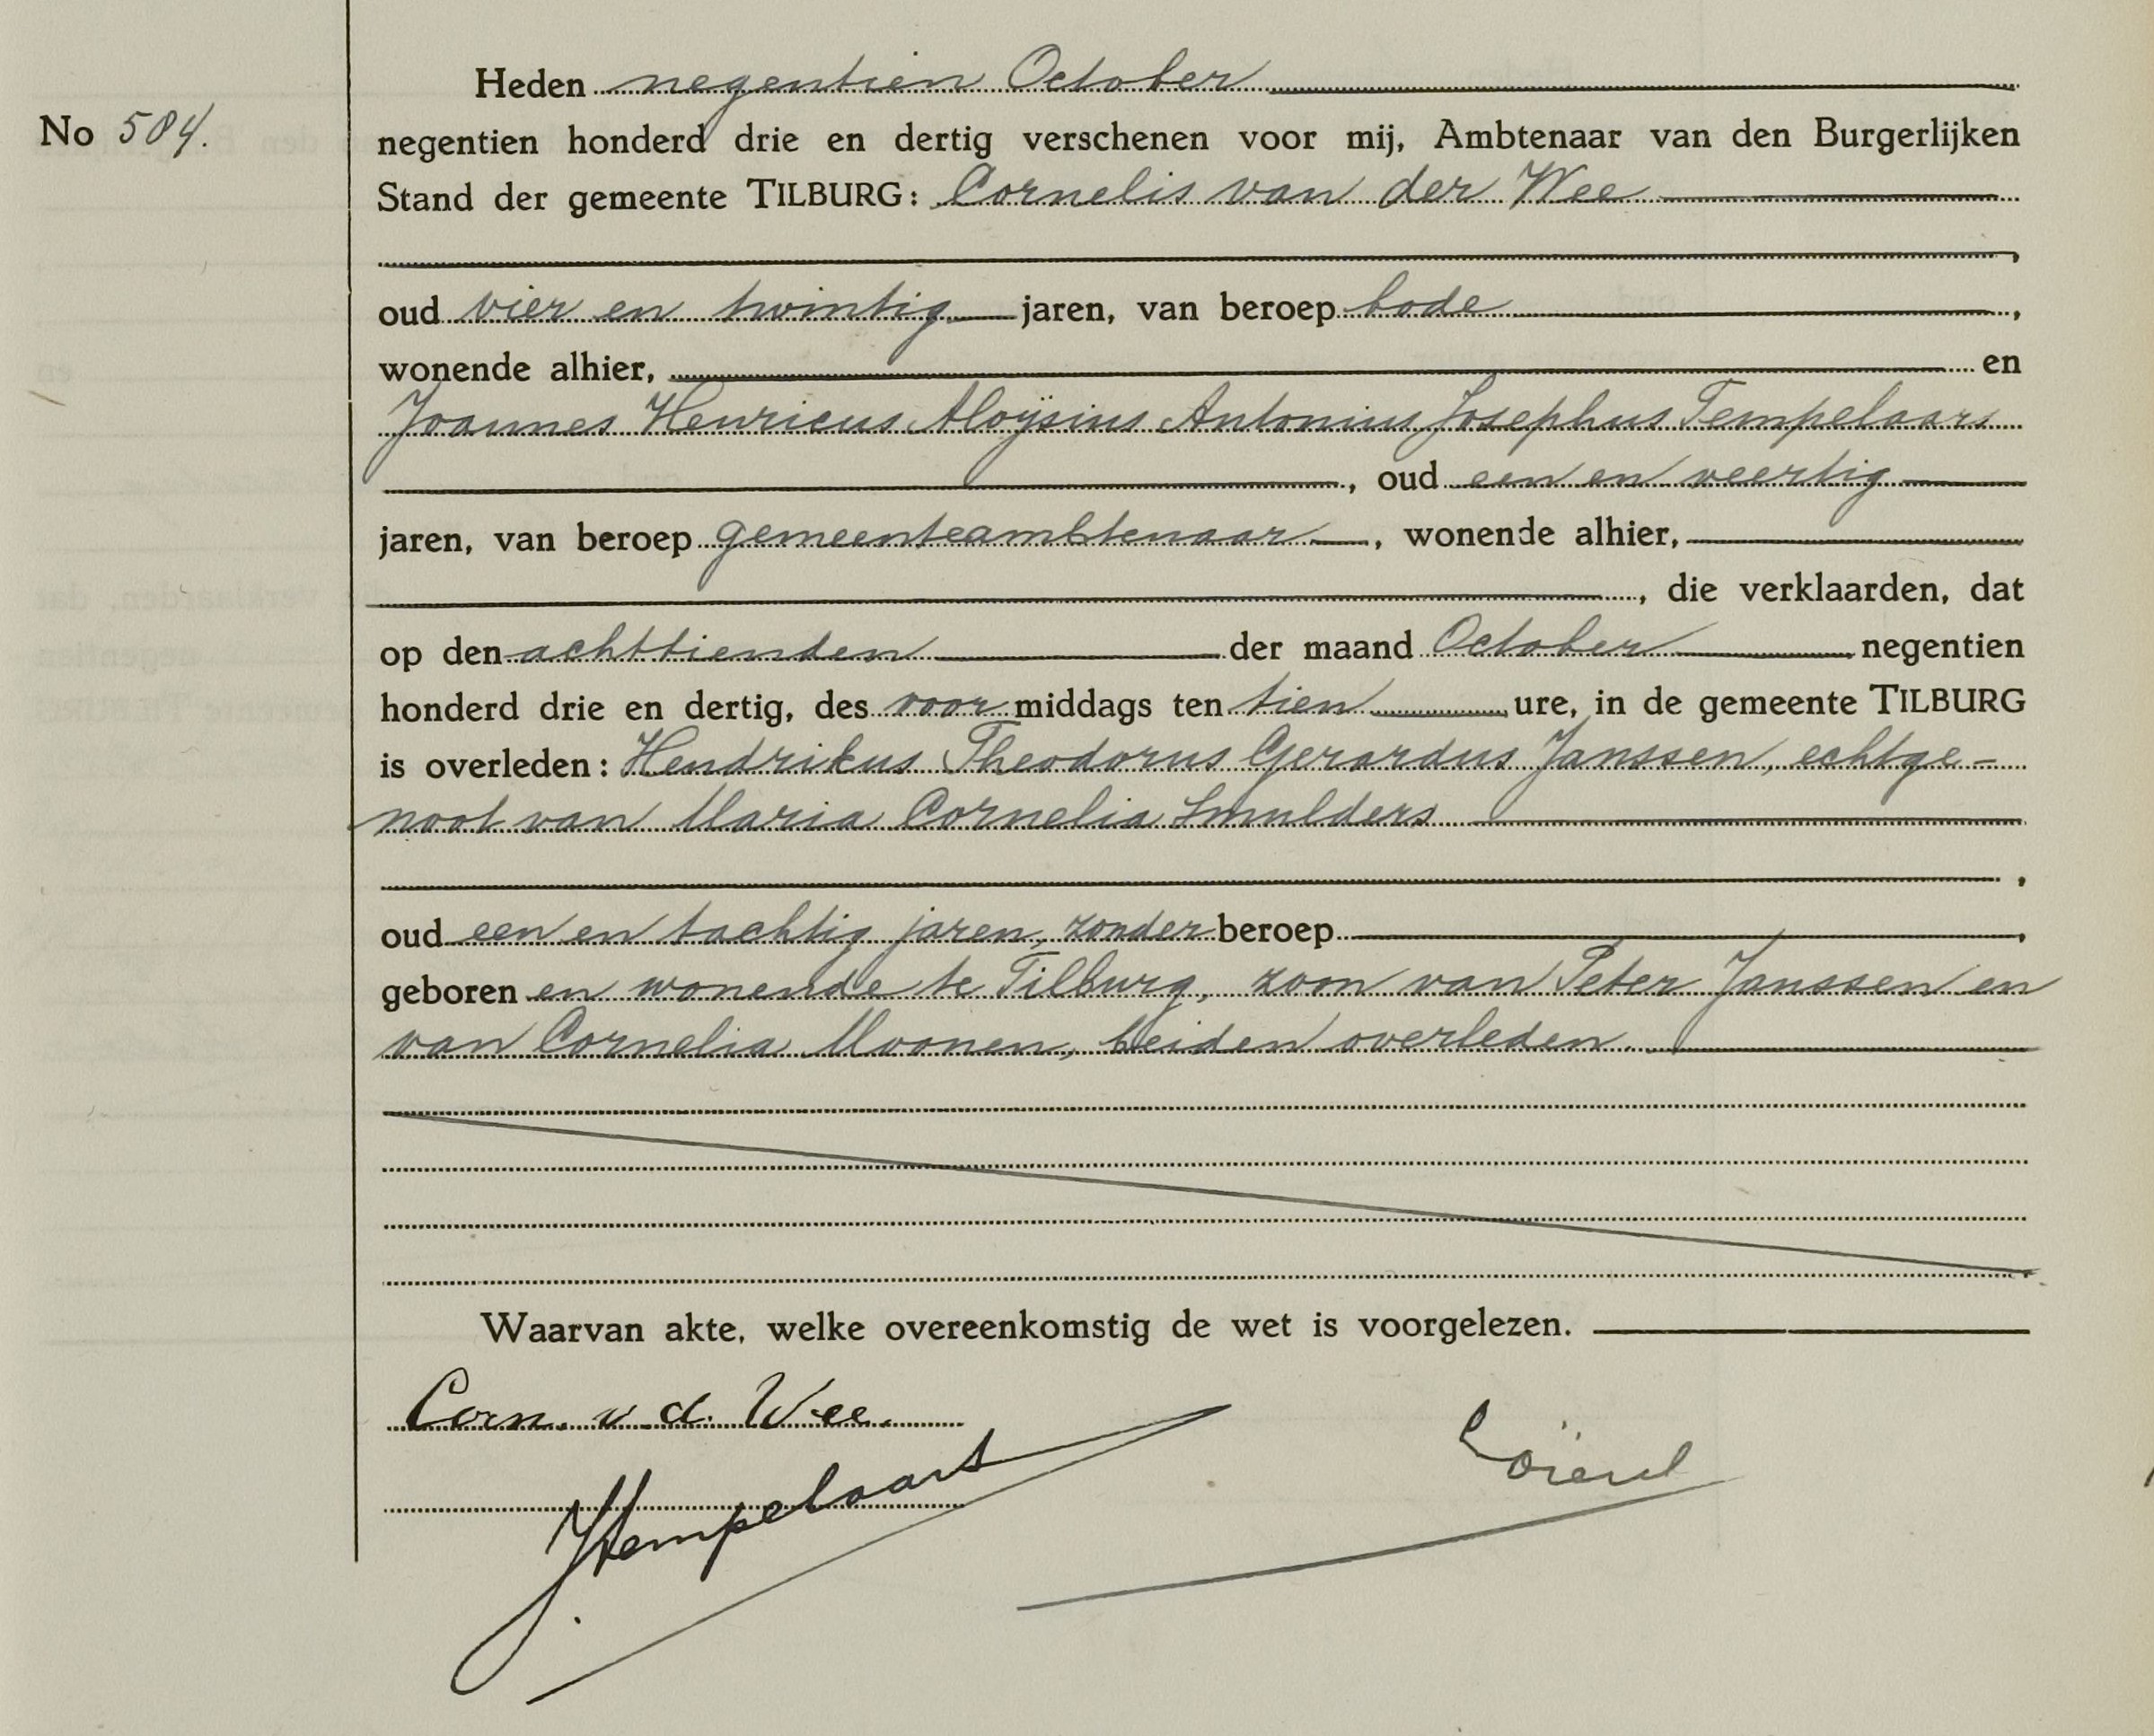 Heden negentien October
No 584.
negentien honderd drie en dertig verschenen voor mij, Ambtenaar van den Burgerlijken
Stand der gemeente TILBURG: Cornelis van der Wee
,
oud vier en twintig jaren, van beroep bode ,
wonende alhier, en
Joannes Henricus Aloÿsius Antonius Josephus Tempelaars
, oud een en veertig
jaren, van beroep gemeenteambtenaar , wonende alhier,
, die verklaarden, dat
op den achttienden der maand October negentien
honderd drie en dertig, des voor middags ten tien ure, in de gemeente TILBURG
is overleden: Hendrikus Theodorus Gerardus Janssen, echtge-
noot van Maria Cornelia Smulders
,
oud een en tachtig jaren, zonder beroep ,
geboren en wonende te Tilburg, zoon van Peter Janssen en
van Cornelia Moonen, beiden overleden.
Waarvan akte, welke overeenkomstig de wet is voorgelezen.
Corn. v. d. Wee.
JTempelaars